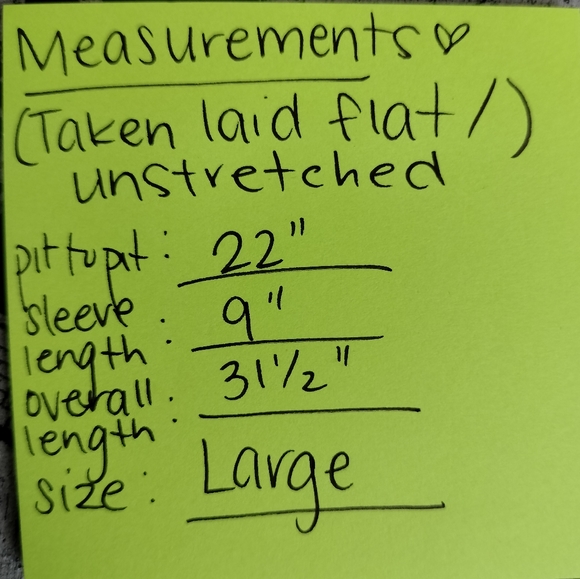 Measurements ♡
(Taken laid flat/)
unstretched
pit to pit: 22"
sleeve length: 9"
overall length: 31 1/2"
size: Large